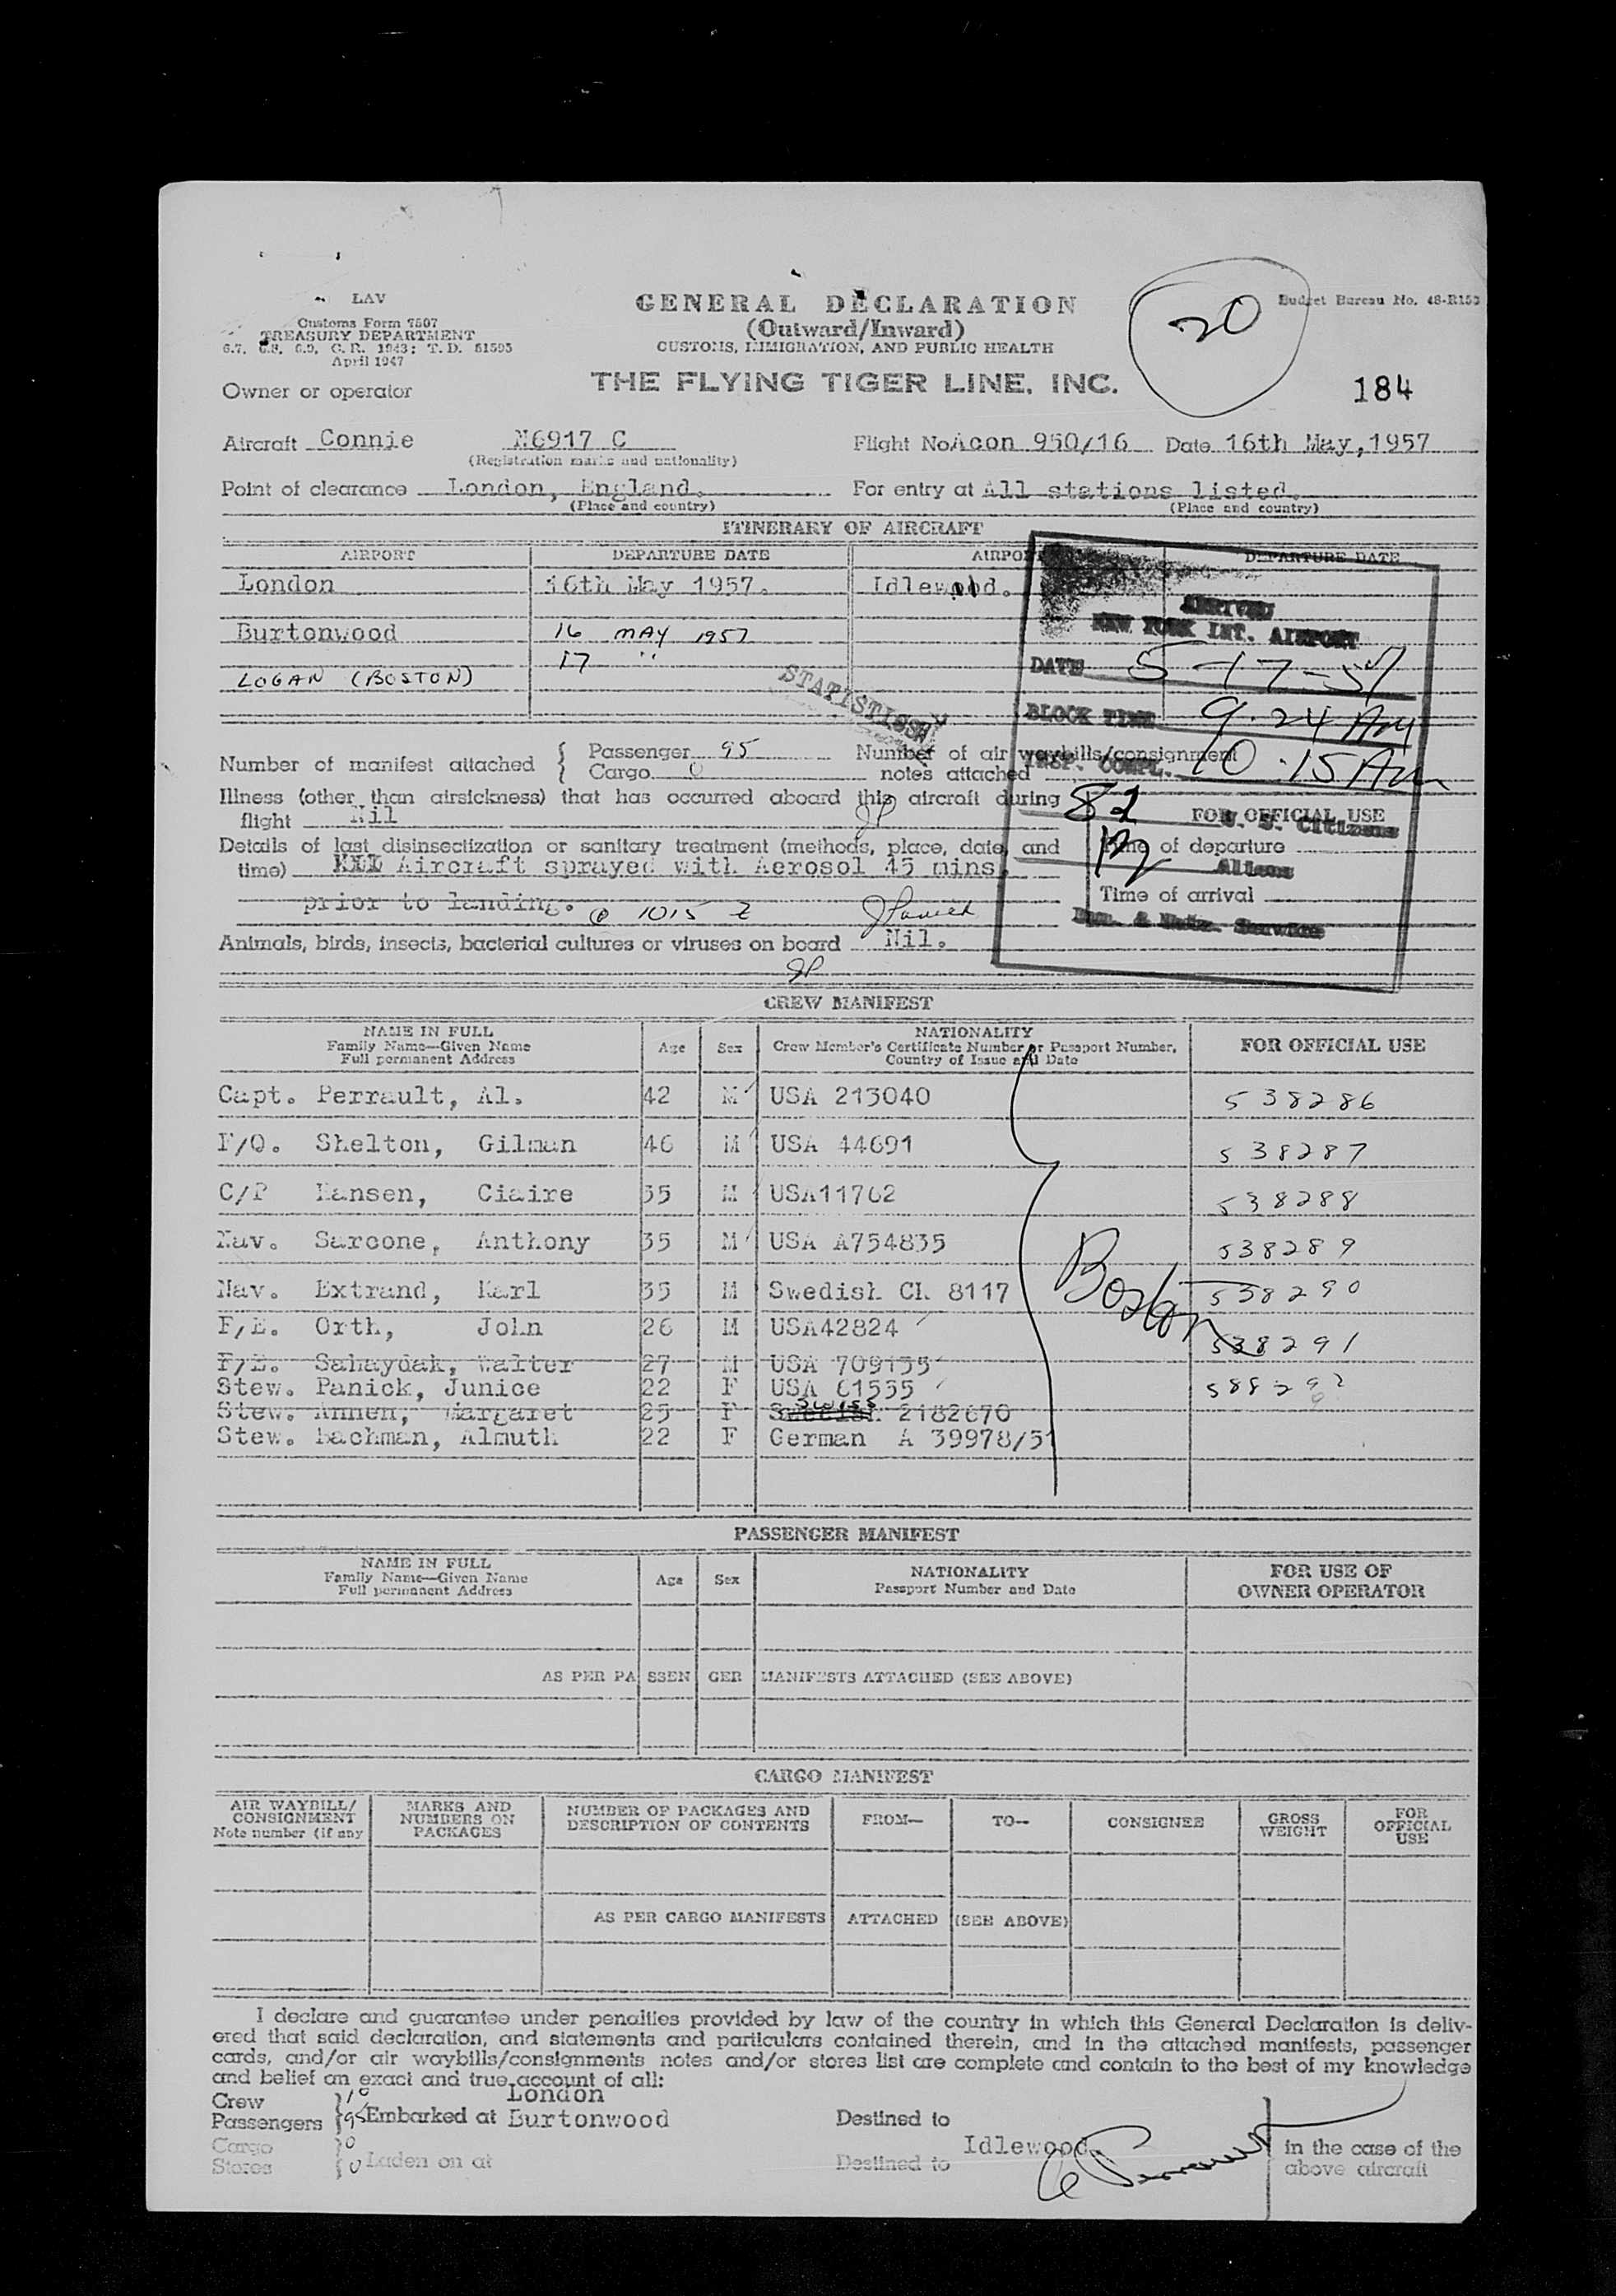 LAV
Customs Form 7507
TREASURY DEPARTMENT
6.7, 6.8, 6.9, C. R. 1943; T. D. 51595
April 1947
GENERAL DECLARATION
(Outward/Inward)
CUSTOMS, IMMIGRATION, AND PUBLIC HEALTH
20
Budget Bureau No. 48-R153
Owner or operator
THE FLYING TIGER LINE, INC.
184
Aircraft Connie N6917 C Flight No Acon 950/16 Date 16th May, 1957
(Registration marks and nationality)
Point of clearance London, England. For entry at All stations listed.
(Place and country) (Place and country)
ITINERARY OF AIRCRAFT
AIRPORT DEPARTURE DATE AIRPORT DEPARTURE DATE
London 16th May 1957. Idlewild.
Burtonwood 16 MAY 1957
LOGAN (BOSTON) 17 "
ARRIVED
NEW YORK INT. AIRPORT
DATE 5-17-57
BLOCK TIME 9.24 AM
INSP. COMPL. 10.15 AM
82 U. S. Citizens
Aliens
Imm. & Natz. Service
Number of manifest attached { Passenger 95 Cargo 0 Number of air waybills/consignment notes attached
Illness (other than airsickness) that has occurred aboard this aircraft during
flight Nil JP
FOR OFFICIAL USE
Details of last disinsectization or sanitary treatment (methods, place, date, and
time) Aircraft sprayed with Aerosol 45 mins.
Time of departure
prior to landing. @ 1015 Z JPanick
Time of arrival
Animals, birds, insects, bacterial cultures or viruses on board Nil.
JP
CREW MANIFEST
NAME IN FULL
Family Name—Given Name
Full permanent Address
Age Sex
NATIONALITY
Crew Member's Certificate Number or Passport Number,
Country of Issue and Date
FOR OFFICIAL USE
Capt. Perrault, Al. 42 M USA 213040 538286
F/O. Shelton, Gilman 46 M USA 44691 538287
C/P Hansen, Claire 35 M USA11762 538288
Nav. Sarcone, Anthony 35 M USA A754835 538289
Nav. Extrand, Karl 35 M Swedish Ch 8117 538290
Boston
F/E. Orth, John 26 M USA42824 538291
F/E. Sahaydak, Walter 27 M USA 709155
Stew. Panick, Junice 22 F USA 61555 588292
Stew. Annen, Margaret 25 F Swedish Swiss 2182670
Stew. Bachman, Almuth 22 F German A 39978/51
PASSENGER MANIFEST
NAME IN FULL
Family Name—Given Name
Full permanent Address
Age Sex
NATIONALITY
Passport Number and Date
FOR USE OF
OWNER OPERATOR
AS PER PASSENGER MANIFESTS ATTACHED (SEE ABOVE)
CARGO MANIFEST
AIR WAYBILL/
CONSIGNMENT
Note number (if any
MARKS AND
NUMBERS ON
PACKAGES
NUMBER OF PACKAGES AND
DESCRIPTION OF CONTENTS
FROM—
TO—
CONSIGNEE
GROSS
WEIGHT
FOR
OFFICIAL
USE
AS PER CARGO MANIFESTS ATTACHED (SEE ABOVE)
I declare and guarantee under penalties provided by law of the country in which this General Declaration is deliv-
ered that said declaration, and statements and particulars contained therein, and in the attached manifests, passenger
cards, and/or air waybills/consignments notes and/or stores list are complete and contain to the best of my knowledge
and belief an exact and true account of all:
Crew 10 London
Passengers 95 Embarked at Burtonwood Destined to
Idlewood
Cargo 0
Stores 0 Laden on at Destined to
in the case of the
above aircraft